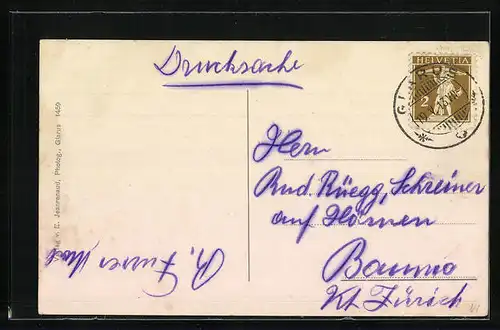 Drucksache
HELVETIA
2
GLARUS
Herrn
Rud. Rüegg, Schreiner
auf Hörnen
Bauma
Kt. Zürich
E. Jeanrenaud, Photog., Glarus 1409